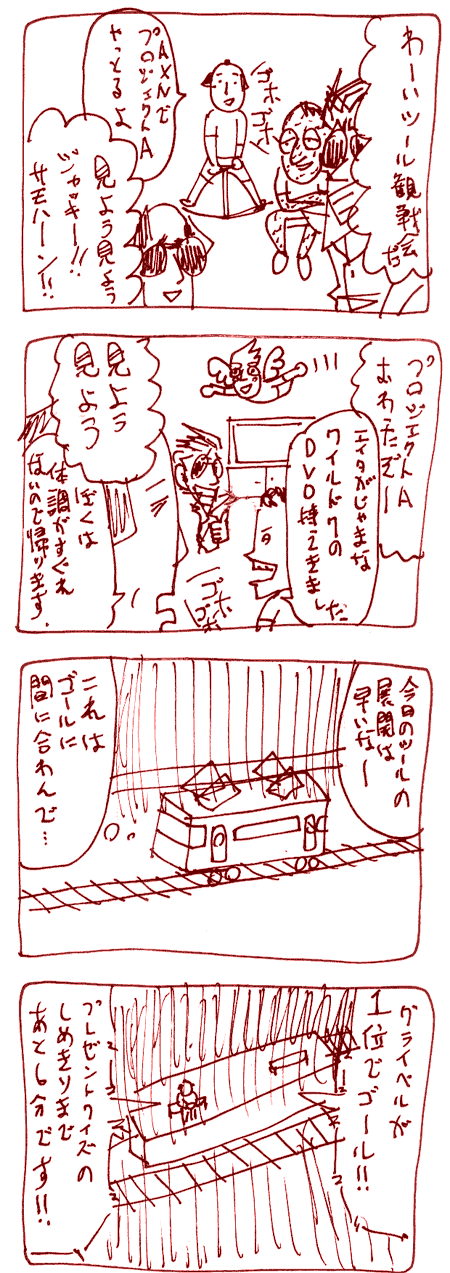 わーいツール観戦会だ
ゴホ
ゴホ
AXNで
プロジェクトA
やっとるよ
見よう見よう
ジャッキー!!
サモハーン!!
プロジェクトA
おわったぞー
エイタがじゃまな
ワイルド7の
DVD持ってきました
見よう
見よう
ゴホ
ゴホ
ぼくは
体調がすぐれ
ないので帰ります.
今日のツールの
展開は
早いなー
これは
ゴールに
間に合わんで…
グライペルが
1位でゴール!!
プレゼントクイズの
しめきりまで
あと6分です!!